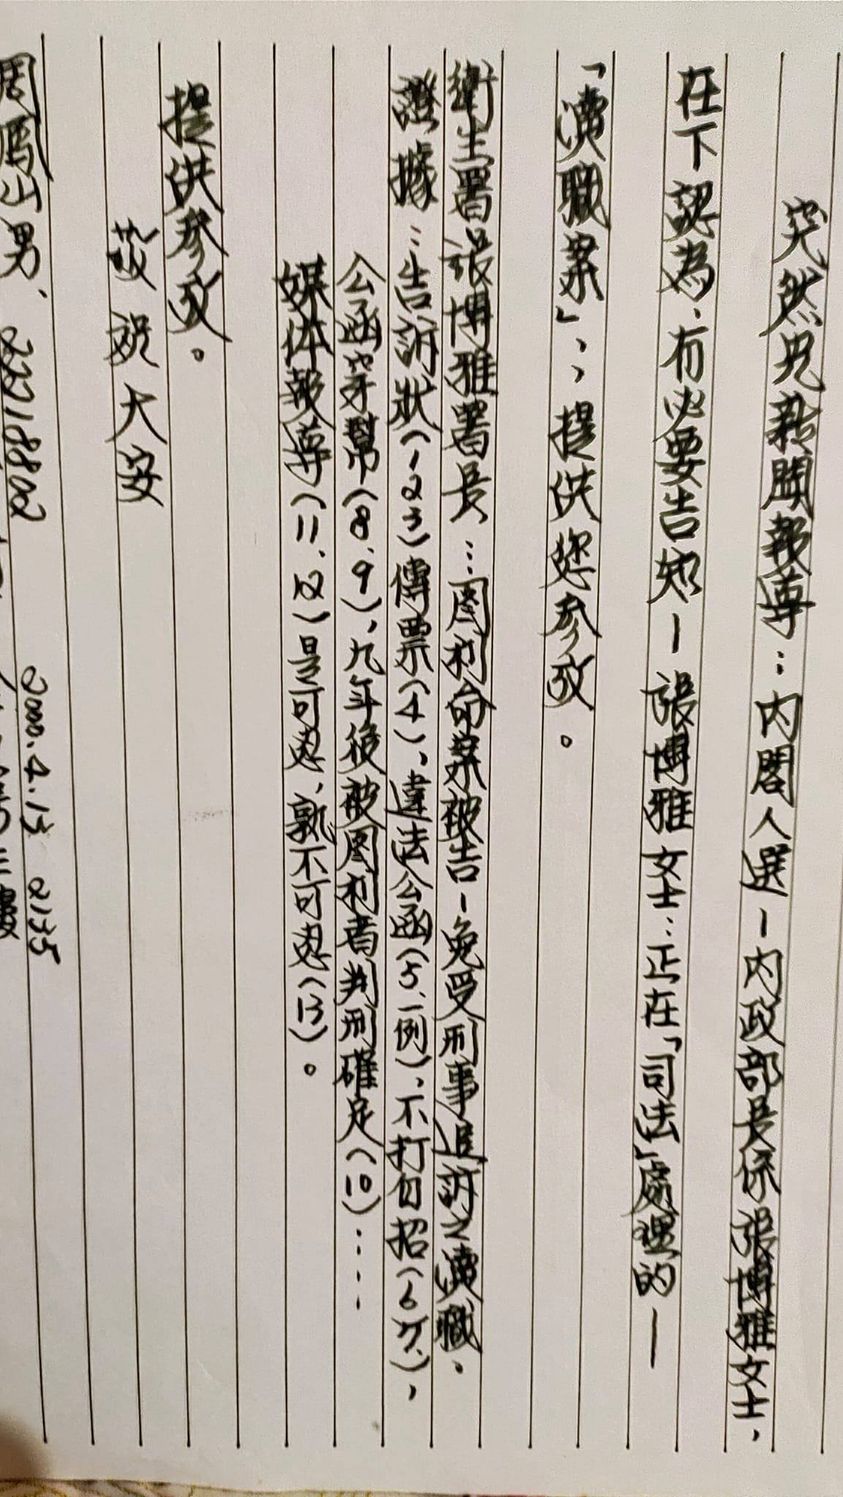 突然見新聞報導：內閣人選－內政部長係張博雅女士，
在下認為、有必要告知－張博雅女士：正在「司法」處理的－
「瀆職案」；提供您參攷。
衛生署張博雅署長、…圖利命案被告－免受刑事追訴之瀆職、
證據：告訴狀（1 2 3）傳票（4）、違法公函（5、一例）、不打自招（6 7、），
公函穿幫（8、9），九年後被圖利者判刑確定（10）……
媒体報導（11、12）是可忍，孰不可忍（13）。
提供參攷。
敬祝大安
周鳳山男、 2000.4.13 2135